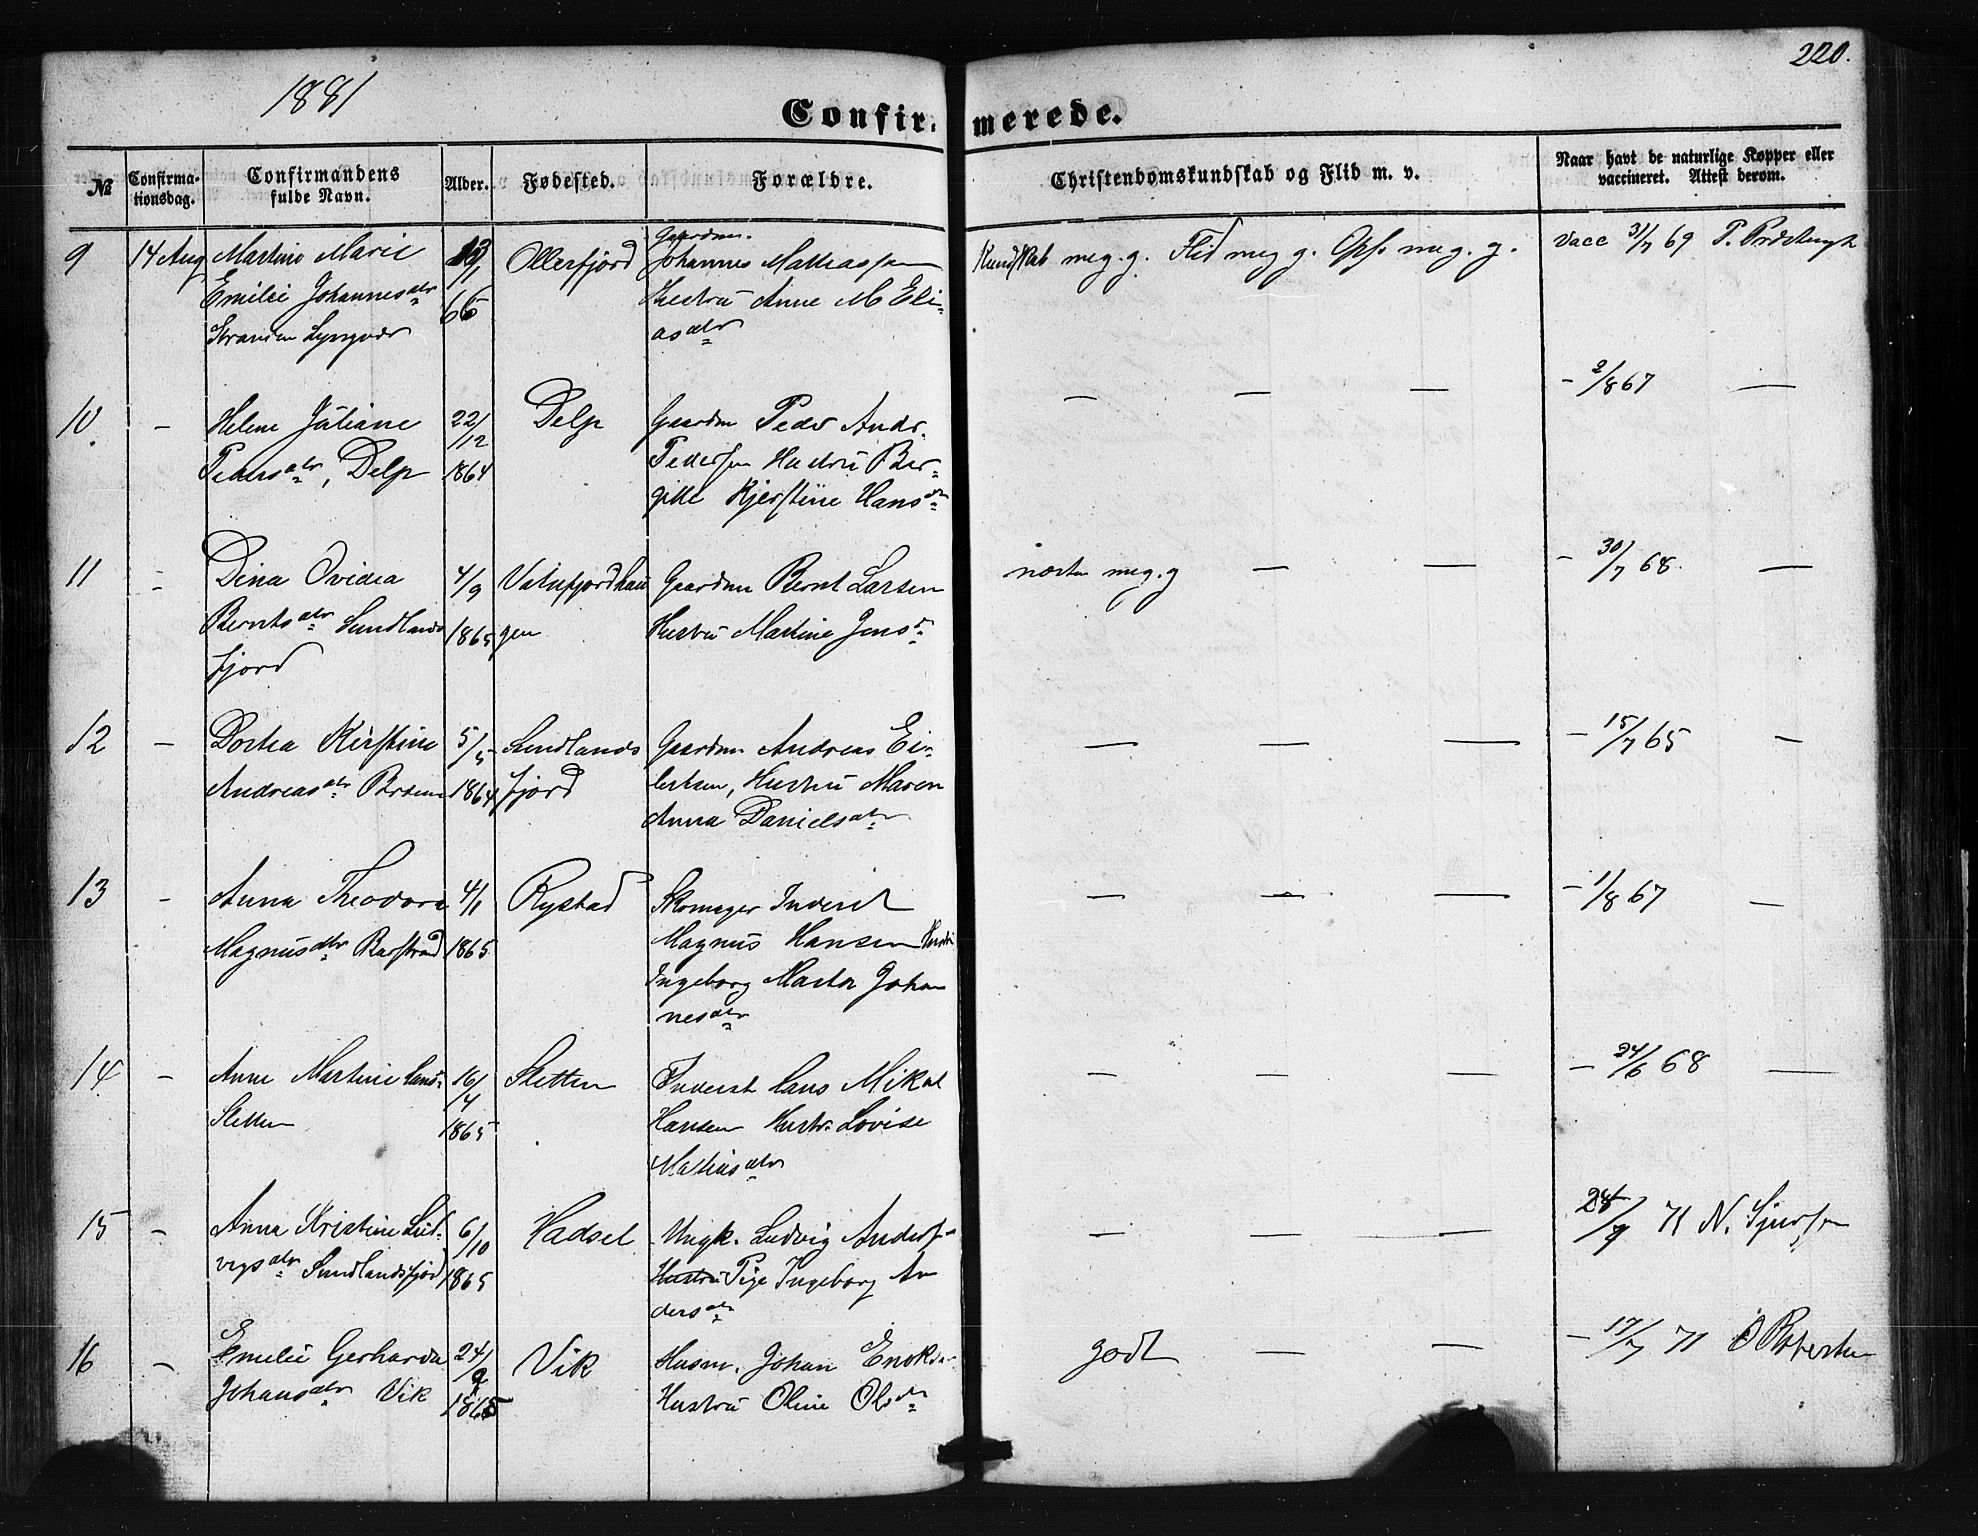 1881
220.
Confirmerede.
№
Confirmationsdag.
Confirmandens fulde Navn.
Alder.
Fødested.
Forældre.
Christendomskundskab og Flid m. v.
Naar havt de naturlige Kopper eller vaccineret. Attest derom.
9 14 Aug Martine Marie Ollerfjord Gaardm.
Johannes Mathiassen Kundskab meg. g. Flid meg g. Opf. meg. g. Vacc 31/7 69
Emilie Johannesdtr 66 Hustru Anne M Eli-
Stranden Lyngvær asdtr
10. – Helene Juliane 22/12 Delp Gaardm Peder Andr. – – – – 2/8 67 –
Pedersdtr, Delp 1864 Pedersen Hustru Ber-
gitte Kjerstine Hansdtr
11 – Dina Ovidea 4/9 Vatnfjordhau Gaardm Bernt Larsen næsten meg. g – – – 30/7 68. –
Berntsdtr Sundlands 1865 gen Hustru Martine Jensd
fjord
12 – Dortea Kirstine 5/5 Sundlands Gaardm Andreas Ei- – – – – 15/7 65 –
Andreasdtr 1864 fjord lertsen, Hustru Maren
Anna Danielsdtr
13 – Anna Theodora 4/1 Rystad Skomager Inderst – – – – 1/8 67 –
Magnusdtr Barstrand 1865 Magnus Hansen Hustru
Ingeborg Marta Johan
nesdtr
14 – Anne Martine Hans- 16/4 Sletten Inderst Hans Mikal – – – – 24/6 68 –
Sletten 1865 Hansen Hustr. Lovise
Matiasdtr
15 – Anna Kristine Lud- 6/10 Hadsel Ungk. Ludvig Anders – – – 71 N. Sjursen
vigsdtr Sundlandsfjord 1865 Hustru Pige Ingeborg An
dersdtr
16 – Emilie Gerharda 24/9 Vik Husm. Johan godt – – – 17/7 71
Johansdtr Vik 1865 Hustru Oline Olsd